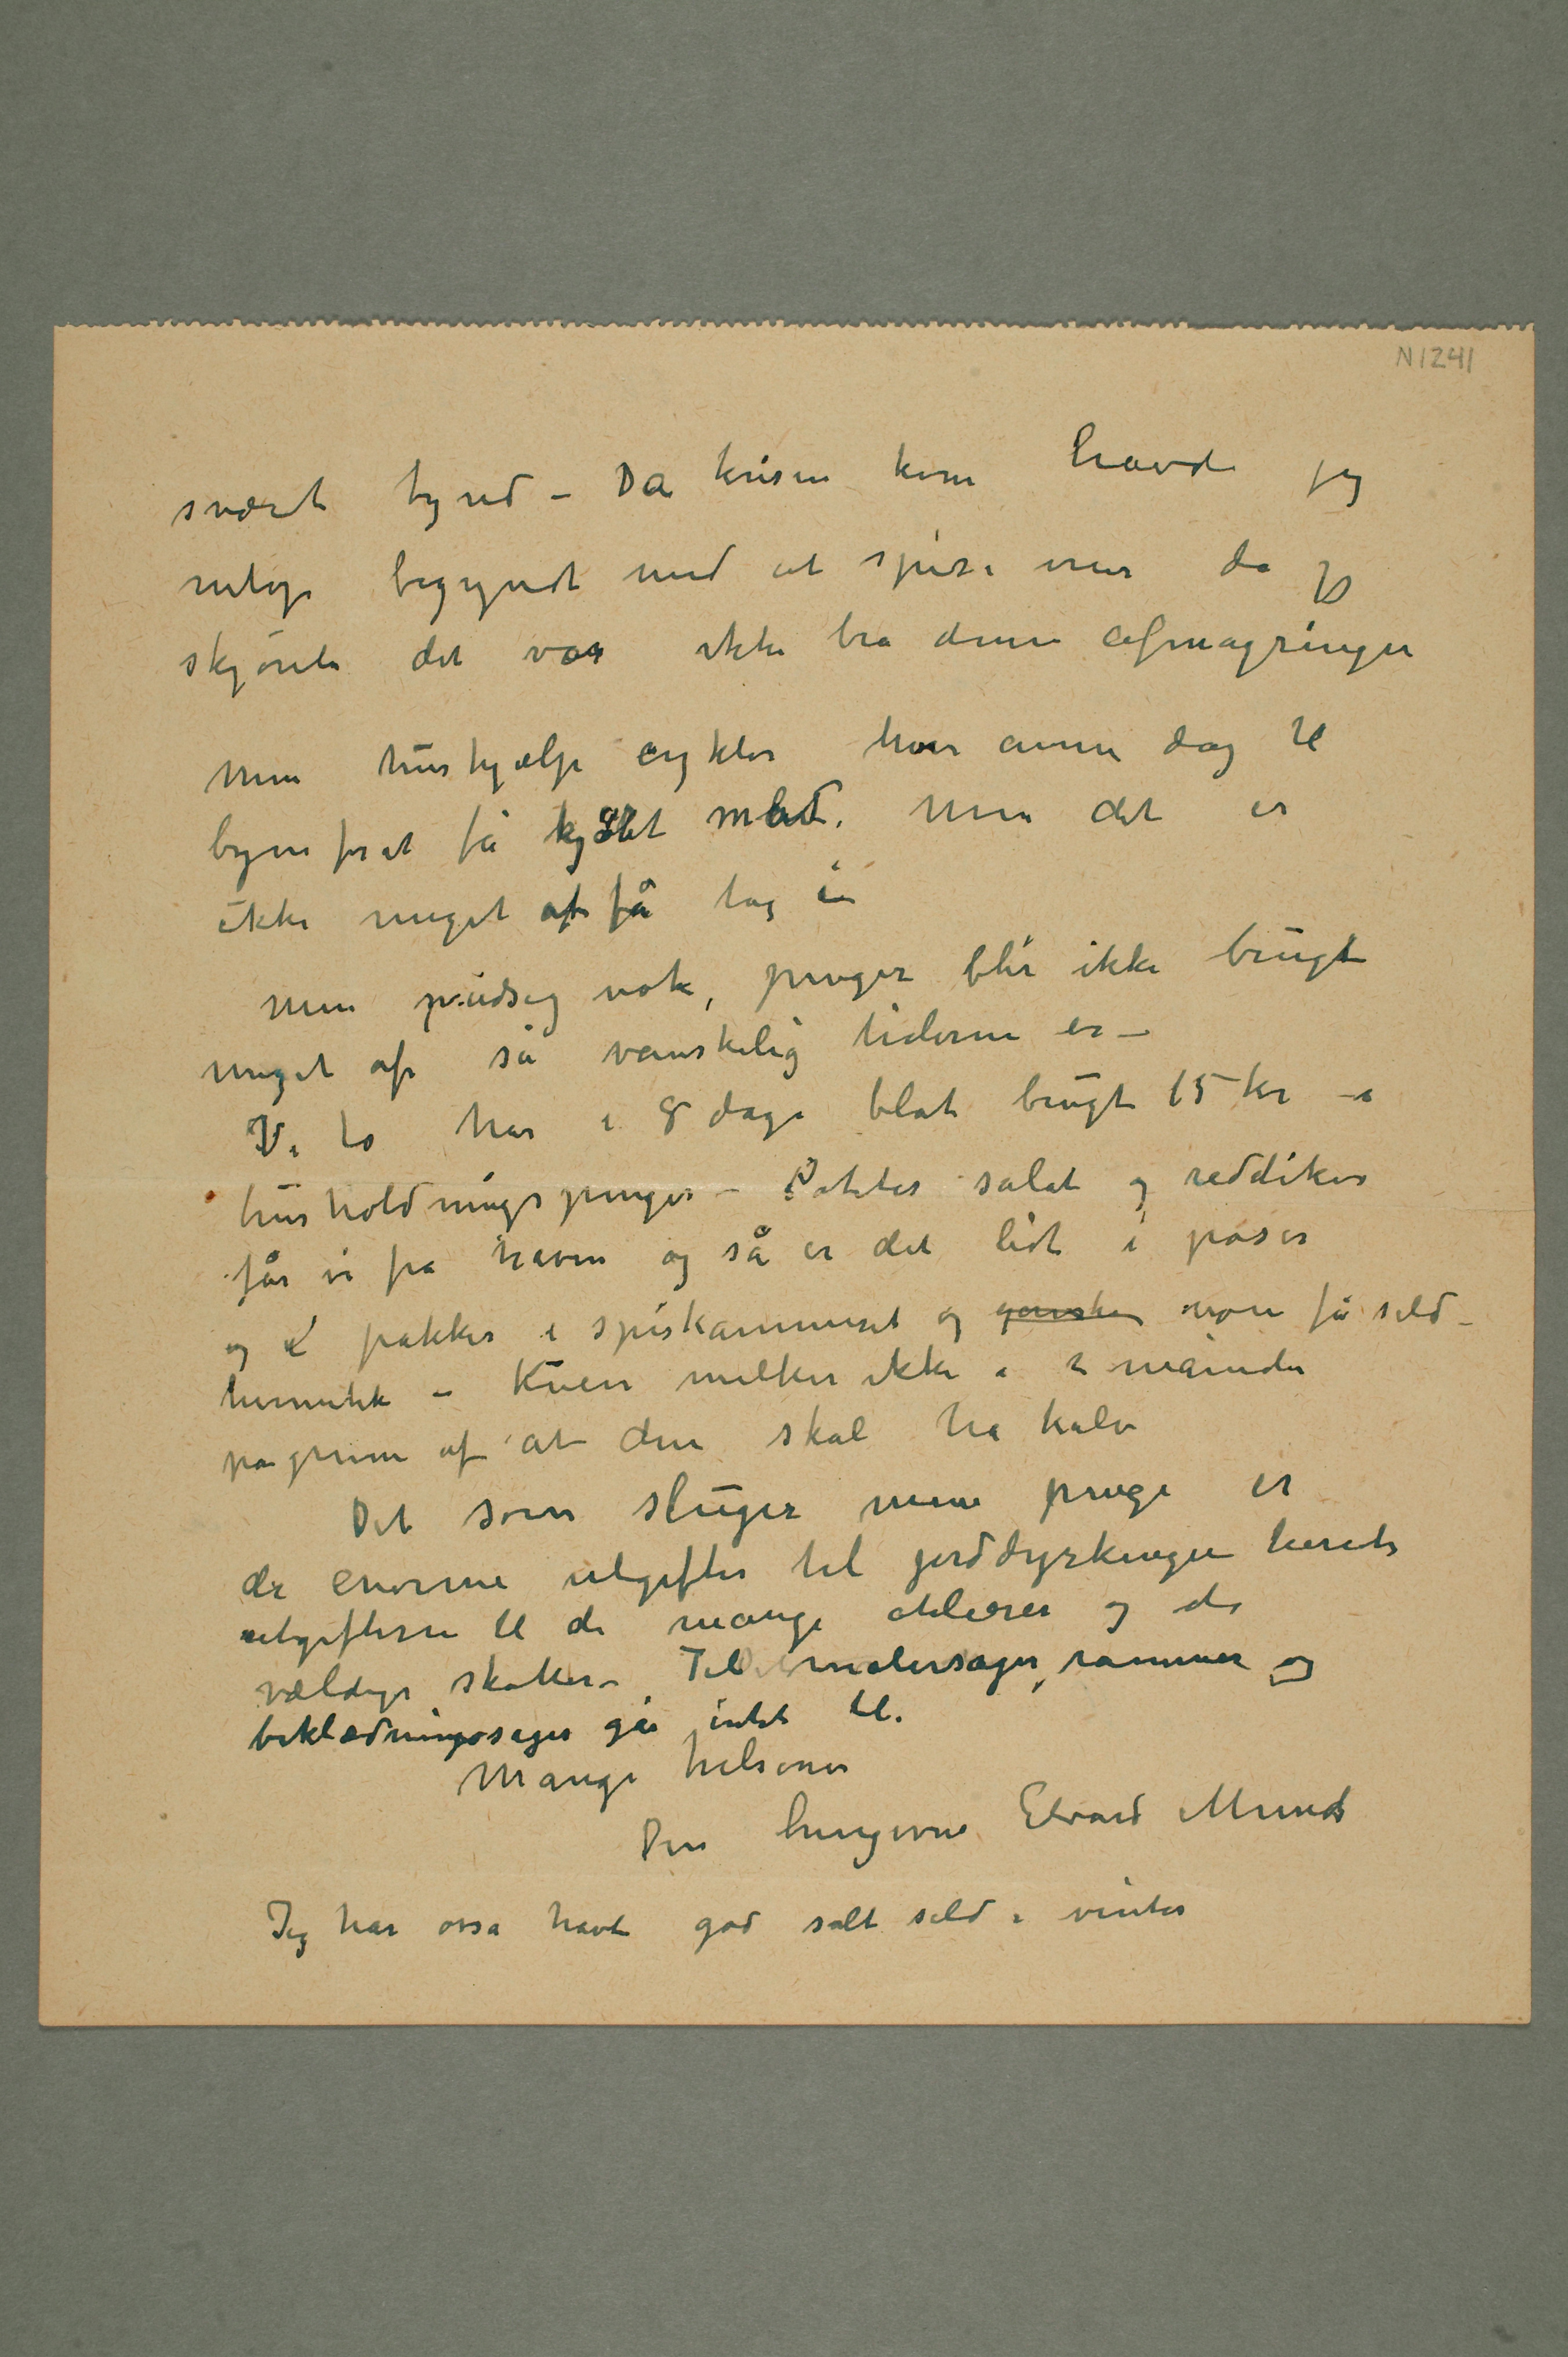 N 1241
svært tynd – Da krisen kom havde jeg
netop begyndt med at spise mer da jeg
skjønte det var ikke bra denne afmagringen
Min hushjælp cykler hver annen dag til
byen forat få kjøbt mad. Men det er
ikke meget at få tag i
Men pudsig nok, penger blir ikke brugt
meget af så vanskelig tiderne er –
Vi to har i 8 dage blot brugt 15 kr i
husholdningspenger – Poteter salat og reddiker
får vi fra haven og så er det lidt i poser
og pakker i spiskammeret og ganske noen få sild-
hermetik – Kuen melker ikke i 2 måneder
på grunn af at den skal ha kalv
Det som sluger mine penge er
de enorme utgifter til jorddyrkingen huset
utgifterne til de mange atelierer og de
vældige skatter – Til malersager, rammer og
beklædningssager går intet til.
Mange hilsener
Din hengivne Edvard Munch
Jeg har osså havt god salt sild i vinter